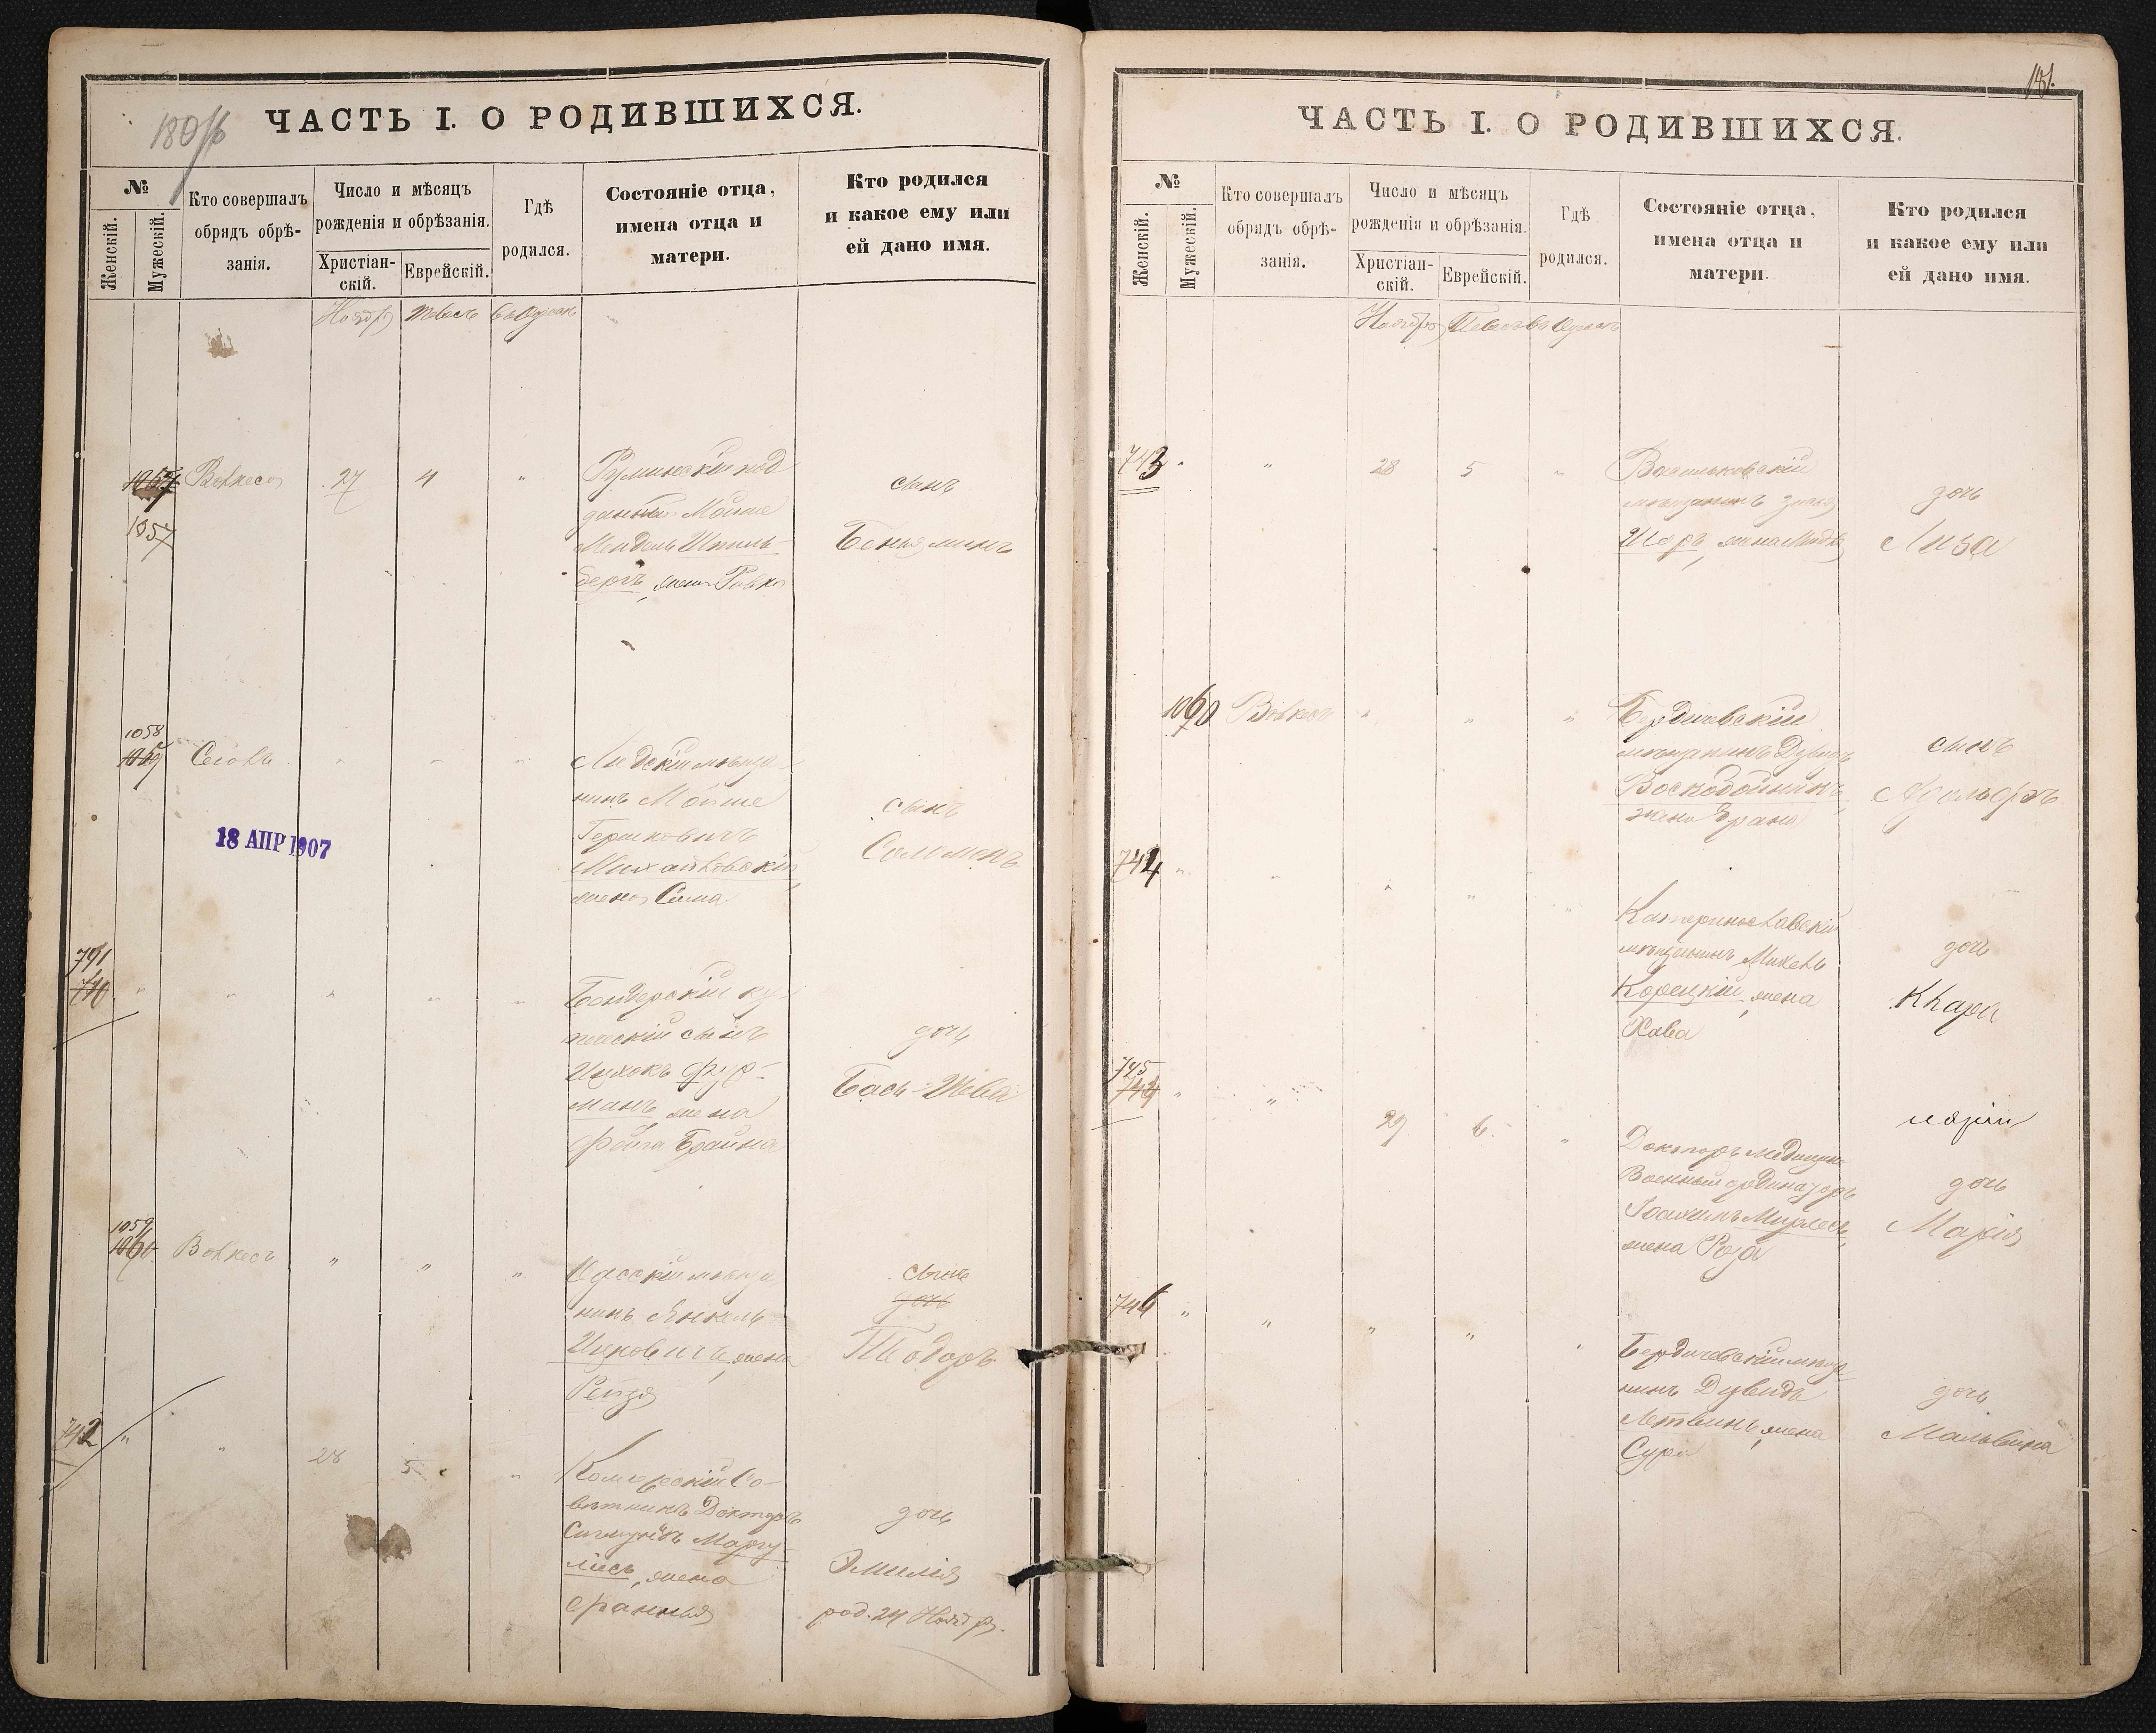 180 об
ЧАСТЬ I. О РОДИВШИХСЯ.
№
Женскій.
Мужескій.
Кто совершалъ
обрядъ обрѣ-
занія.
Число и мѣсяцъ
рожденія и обрѣзанія.
Христіан-
скій.
Еврейскій.
Гдѣ
родился.
Состояніе отца,
имена отца и
матери.
Кто родился
и какое ему или
ей дано имя.
Ноября Тевесъ въ Одессѣ
1057
27 4 "
Румынскій под
данный Мойше
Мендель Шпиль-
бергъ, жена Ривка
сынъ
Беньяминъ
1058
1059
18 АПР 1907
Лидскій мѣща-
нинъ Мойше
Гершковичъ
Михайловскій,
жена Сима
сынъ
Соломонъ
741
740
Бендерскій ку-
печскій сынъ
Ицхокъ Фур-
манъ, жена
Фейга Брайна
дочь
Бася-Шева
1059
1060
Волкесъ " " "
Одесскій мѣща
нинъ Янкель
Ицковичъ, жена
Рейзя
сынъ
дочь
Теодоръ
742 " " 28 5 "
Комерскій Со-
вѣтникъ Докторъ
Сигмундъ Маргу-
лисъ, жена
Франція
дочь
Эмилія
род. 24 Ноябр.
181.
ЧАСТЬ I. О РОДИВШИХСЯ.
№
Женскій.
Мужескій.
Кто совершалъ
обрядъ обрѣ-
занія.
Число и мѣсяцъ
рожденія и обрѣзанія.
Христіан-
скій.
Еврейскій.
Гдѣ
родился.
Состояніе отца,
имена отца и
матери.
Кто родился
и какое ему или
ей дано имя.
Ноября Тевесъ въ Одессѣ
743 " " 28 5 "
Васильковскій
мѣщанинъ
Шоръ, жена
дочь
Лиза
1060 Волкесъ " " "
Бердичевскій
мѣщанинъ Дувидъ
Воскобойникъ,
жена
сынъ
Адольфъ
744 " " " " "
Катеринославскій
мѣщанинъ Михель
Корецкій, жена
Хава
дочь
Клара
745
744 " " 29 6. "
Докторъ Медицин
Военный ординаторъ
Іоахимъ
жена Роза
марія
дочь
Марія
746 " " " " "
Бердичевскій мѣща
нинъ Дувидъ
Летвинъ, жена
Сура
дочь
Мальвина